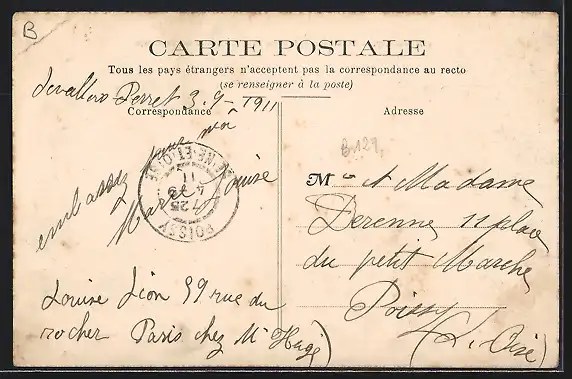 B
CARTE POSTALE
Tous les pays étrangers n'acceptent pas la correspondance au recto
(se renseigner à la poste)
Levallois Perret 3-9-1911
Correspondance
embrassez pour moi
Marie Louise
Louise Léon 59 rue du
rocher Paris chez Mr
POISSY
SEINE-ET-OISE
Adresse
B 129
M et Madame
Derenne 11 place
du petit Marché
Poissy
(S. Oise)